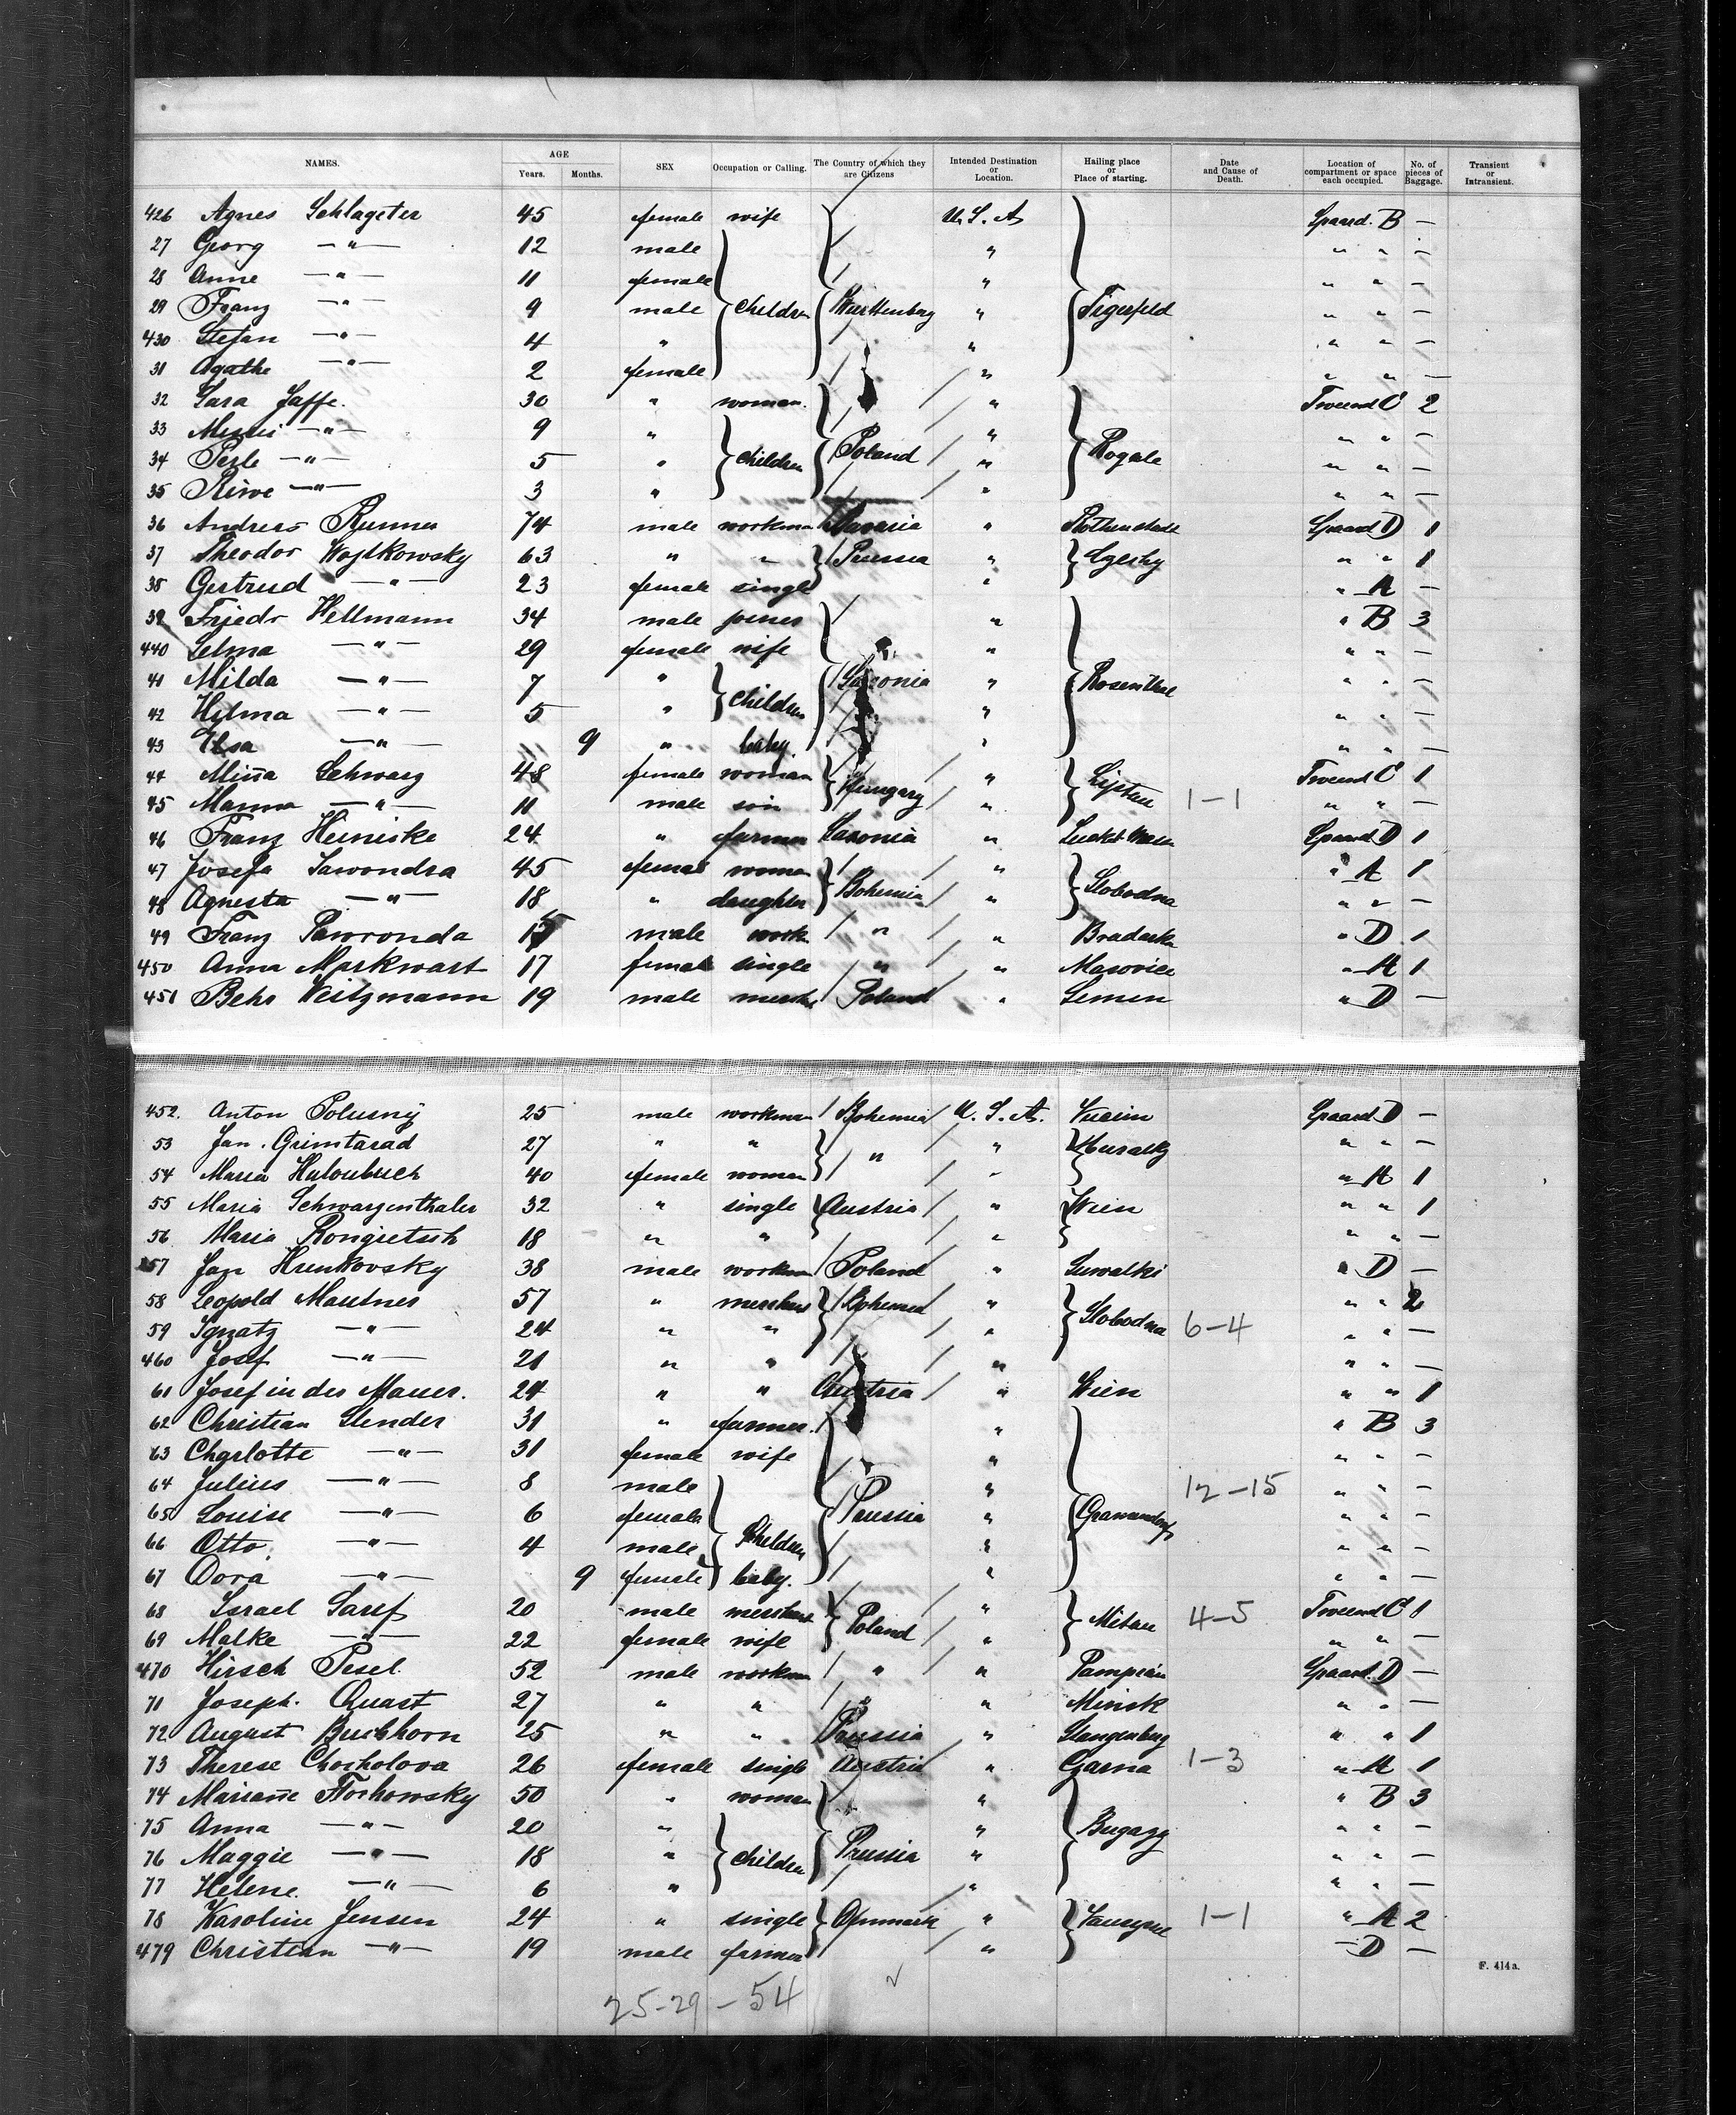 NAMES. AGE Years. Months. SEX Occupation or Calling. The Country of which they are Citizens Intended Destination or Location. Hailing place or Place of starting. Date and Cause of Death. Location of compartment or space each occupied. No. of pieces of Baggage. Transient or Intransient.
426 Agnes Schlageter 45 female wife U. S. A. B —
27 Georg —"— 12 male " " " —
28 Anne —"— 11 female " " " —
29 Franz —"— 9 male children Tigerfeld " " " —
430 Stefan —"— 4 " " " " —
31 Agathe —"— 2 female " " " —
32 Sara Jaffe. 30 " woman. " C 2
33 —"— 9 " " " " —
34 Perle —"— 5 " children Poland " Rogale " " —
35 Riwe —"— 3 " " " " —
36 Andreas 74 male workman Bavaria " D 1
37 Theodor Wojtkowsky 63 " " Prussia " " " 1
38 Gertrud —"— 23 female single " " A —
39 Friedr Hellmann 34 male " " B 3
440 Selma —"— 29 female wife " " " —
41 Milda —"— 7 " children Saxonia " Rosenthal " " —
42 Helma —"— 5 " " " " —
43 Elsa —"— 9 " baby. " " " —
44 Miña Schwarz 48 female woman Hungary " C 1
45 Manna —"— 11 male son " 1-1 " " —
46 Franz Heiniske 24 " farmer Saxonia " D 1
47 Josefa Sawondra 45 female woman Bohemia " Slobodna " A 1
48 Agnesta —"— 18 " daughter " " " —
49 Franz male work " " " D 1
450 Anna Markwart 17 female single " " " A 1
451 Behr Weitzmann 19 male Poland " " D —
452. Anton Polusny 25 male workman Bohemia U. S. A. D —
53 Jan. Grimtarad 27 " " " " " " —
54 Maria 40 female woman " " A 1
55 Maria Schwarzenthaler 32 " single Austria " Wien " " 1
56 Maria Rongietsch 18 " " " " " —
57 Jan Hrenkovsky 38 male workman Poland " Suwalki " D —
58 Leopold Mautner 57 " Bohemia " Slobodna " " 2
59 Ignatz —"— 24 " " " 6-4 " " —
460 Josef —"— 21 " " " " " —
61 Josef in der Mauer. 24 " " Austria " Wien " " 1
62 Christian Slender 31 " farmer. " " B 3
63 Charlotte —"— 31 female wife " " " —
64 Julius —"— 8 male " 12-15 " " —
65 Louise —"— 6 female Prussia " " " —
66 Otto —"— 4 male children " " " —
67 Dora —"— 9 female baby. " " " —
68 Israel 20 male Poland " Mitau 4-5 C 1
69 Malke —"— 22 female wife " " " —
470 Hirsch Pesel. 52 male workman " " D —
71 Joseph. Quast 27 " " " " Minsk " " —
72 August Buchhorn 25 " " Prussia " " " 1
73 Therese Chocholova 26 female single Austria " 1-3 " A 1
74 Mariañe 50 " woman " " B 3
75 Anna —"— 20 " " " " —
76 Maggie —"— 18 " children Prussia " " " —
77 Helene —"— 6 " " " " —
78 Karoline Jensen 24 " single Denmark " 1-1 " A 2
479 Christian —"— 19 male farmer " D —
F. 414a.
25-29-54